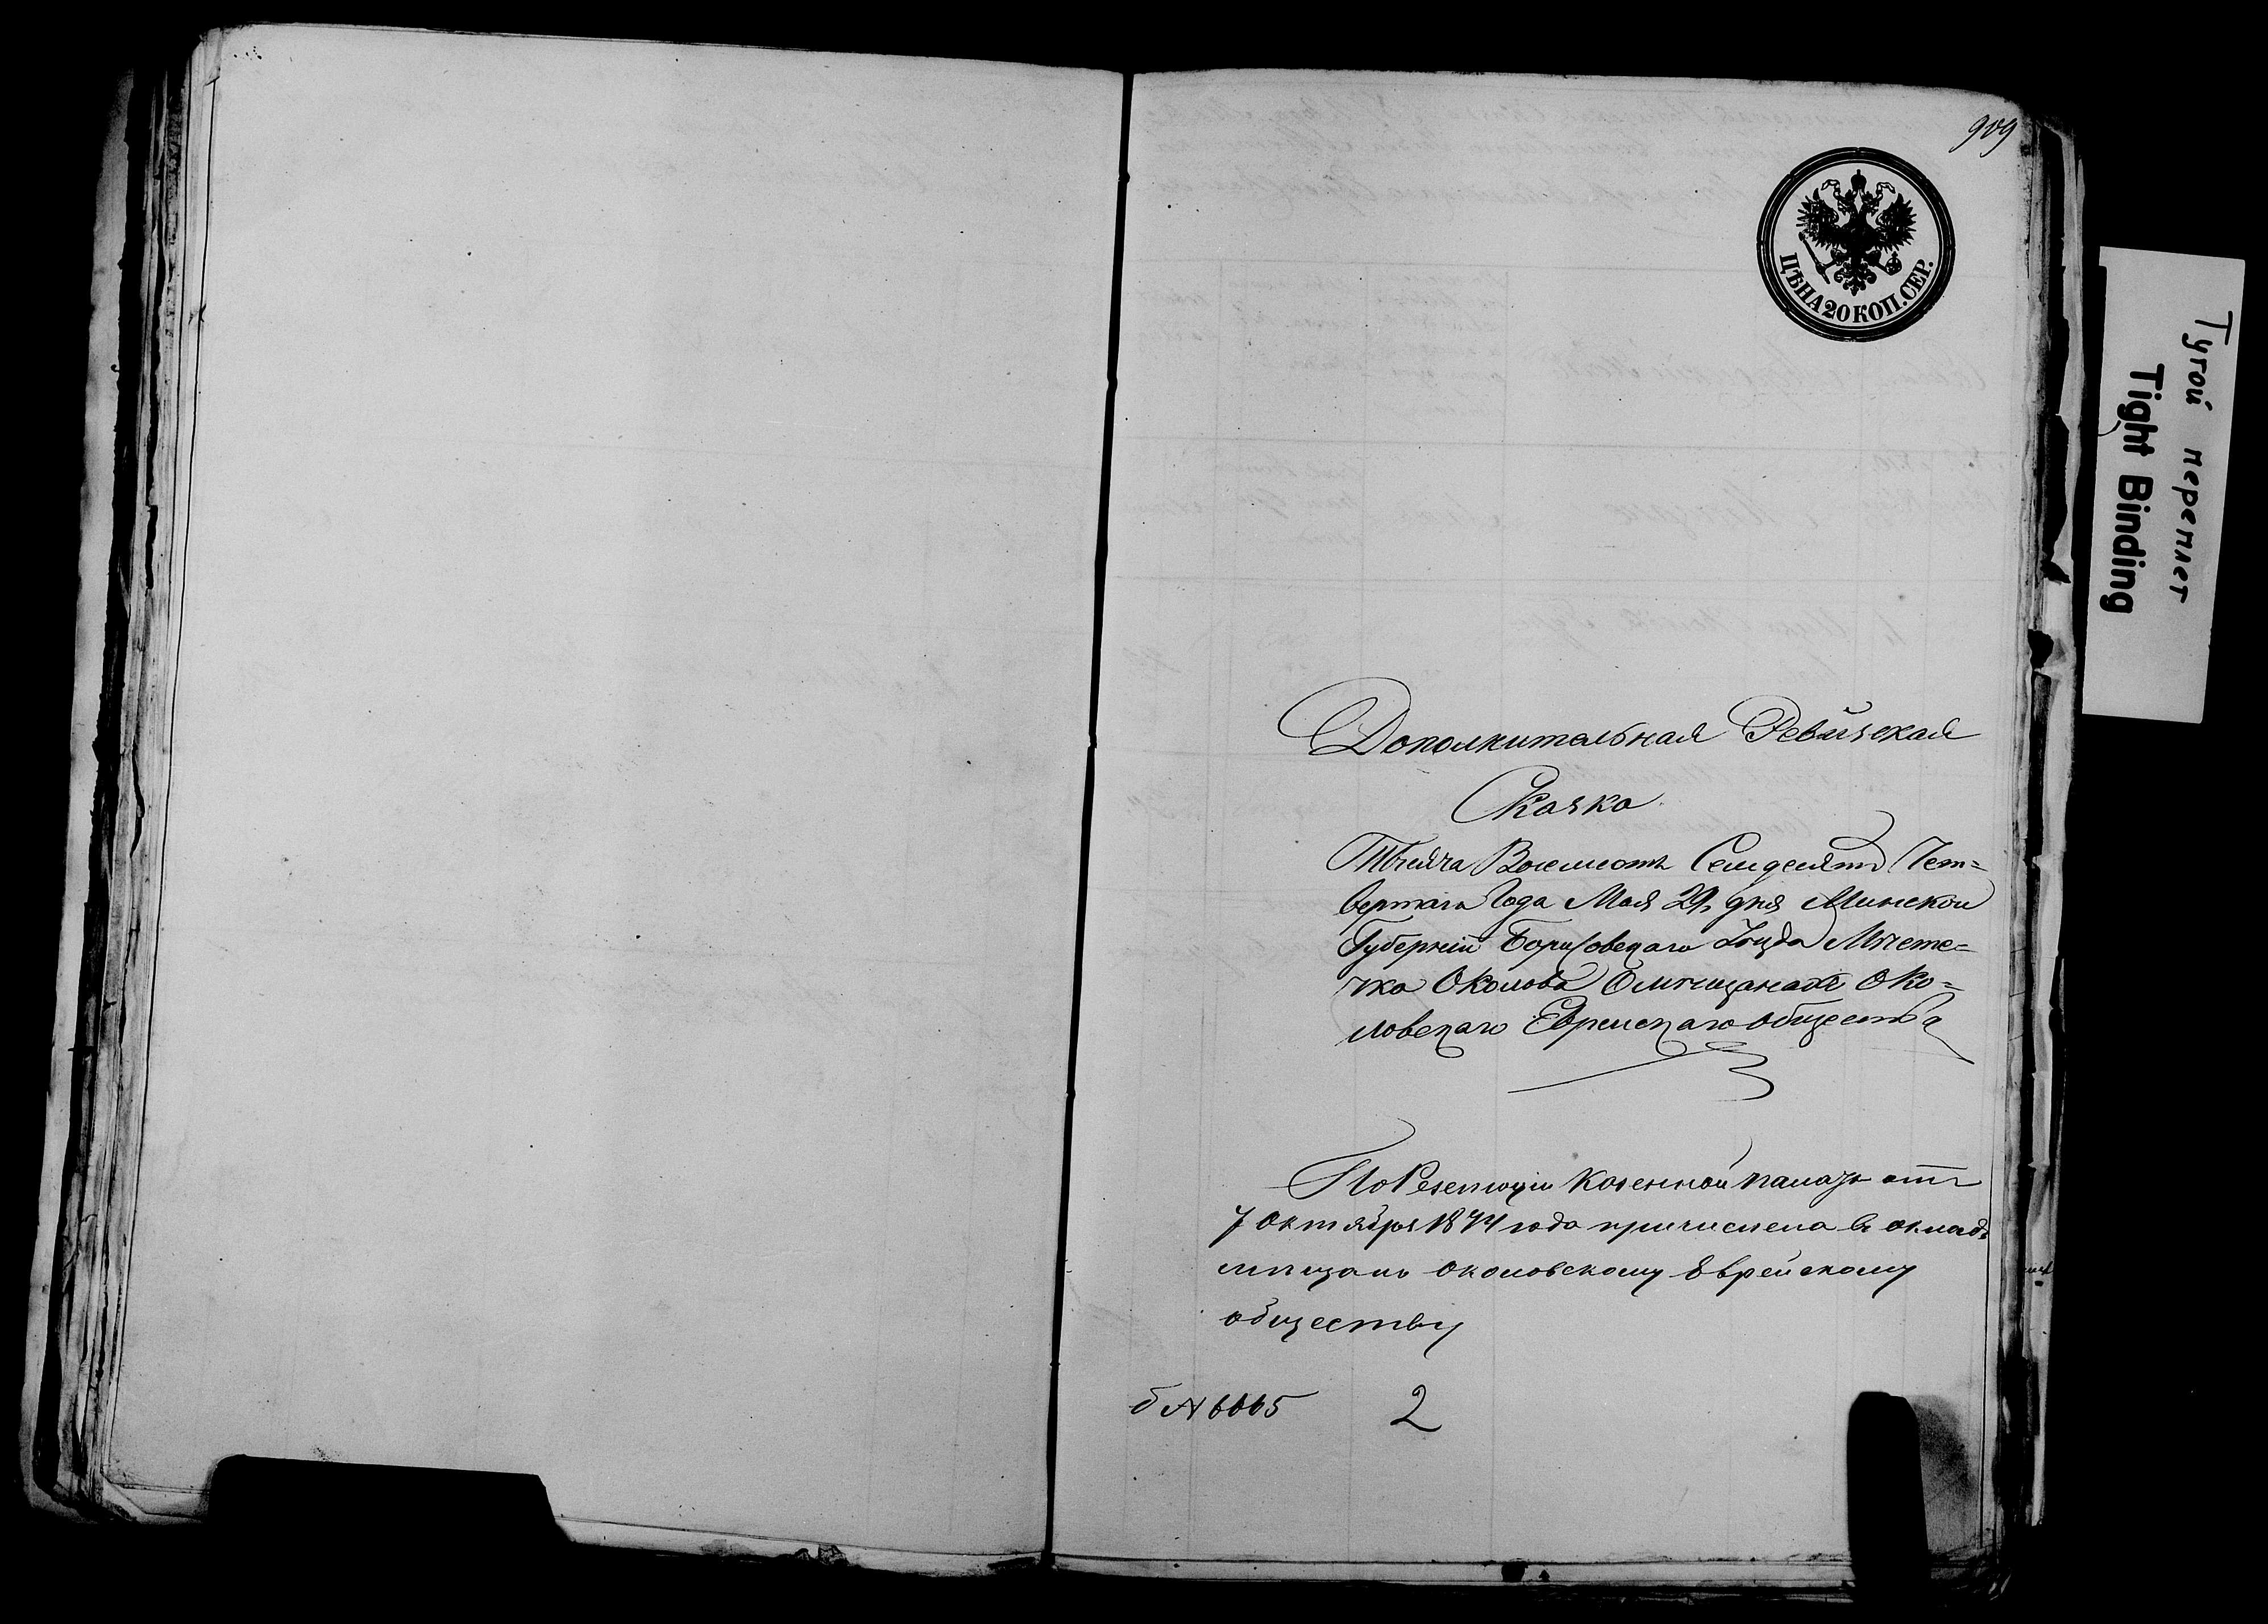 909
ЦѢНА 20 КОП. СЕР.
Дополнительная Ревизская
Сказка
Тысяча Восемсотъ Семдесятъ Чет=
вертаго Года Мая 29 дня Минской
Губерніи Борисовскаго Уезда Мѣсте=
чка Околова Омѣщанахъ Око=
ловскаго Еврейскаго общества
По Резолюціи Казенной палаты отъ
7 Октября 1874 года причислена въ окладъ
мѣщанъ Околовскому Еврейскому
обществу
2
Тугой переплет
Tight Binding